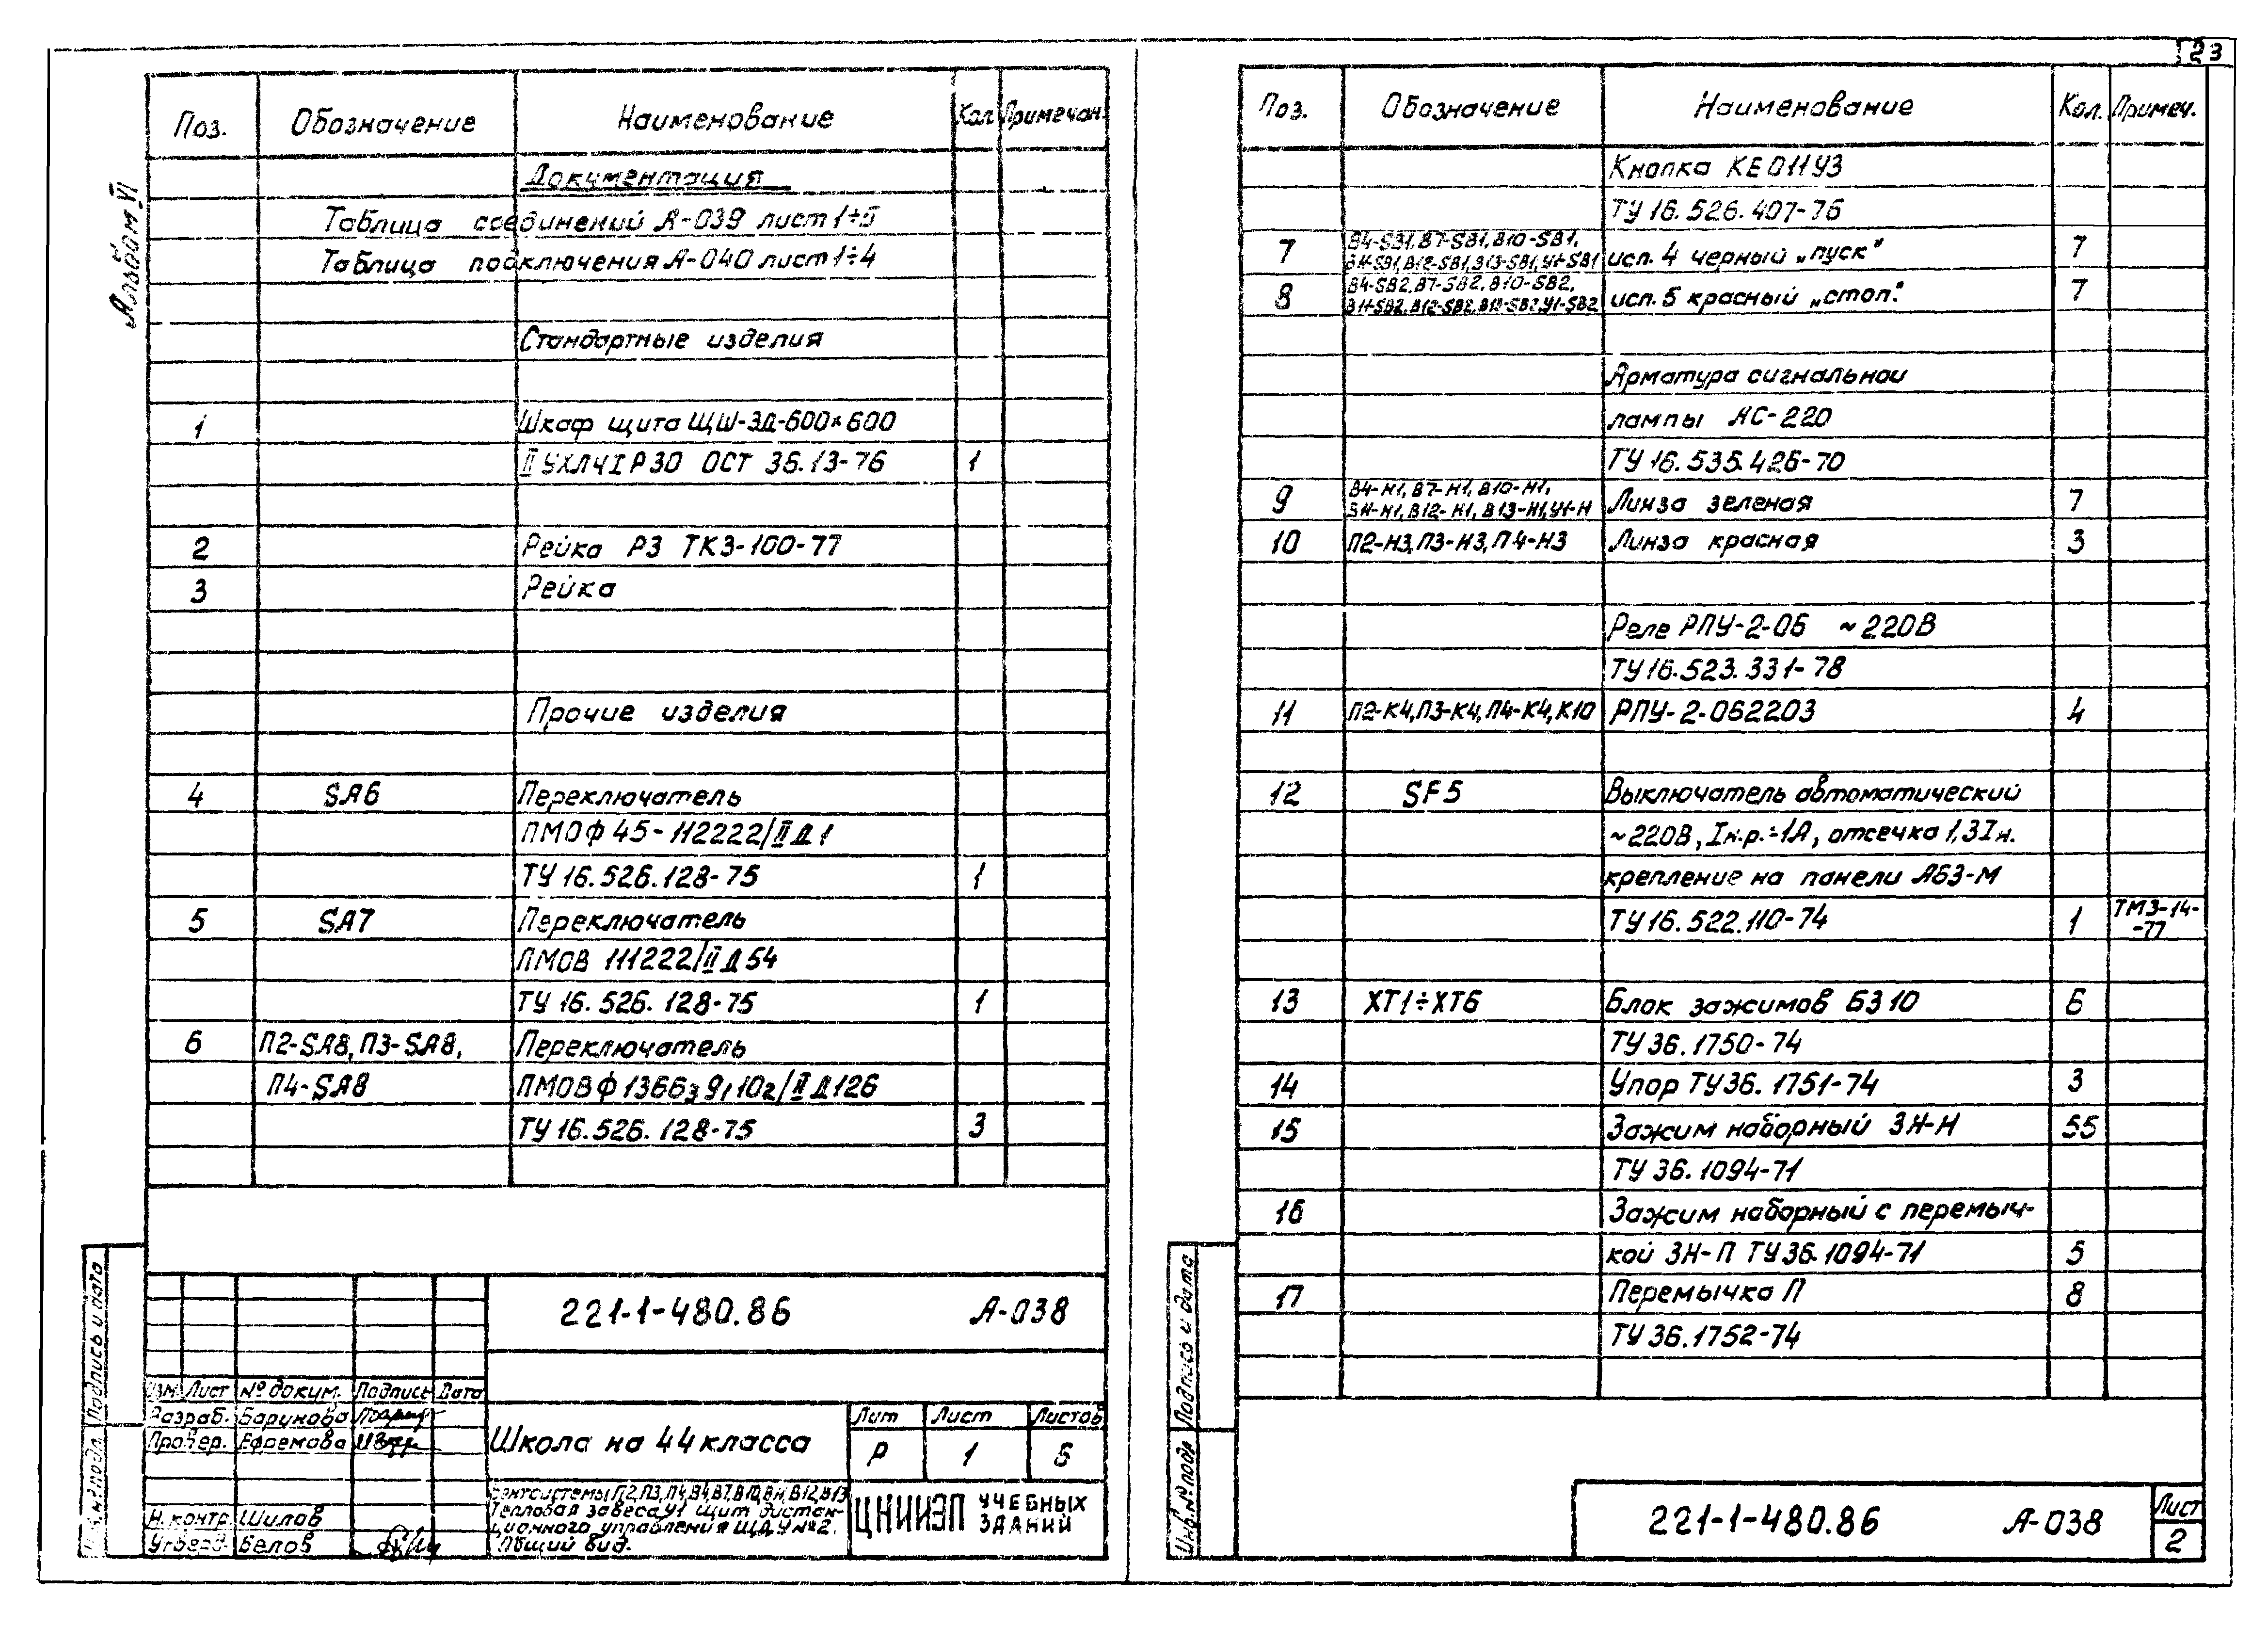 23
Альбом VI
Поз. Обозначение Наименование Кол. Примечан.
Документация
Таблица соединений А-039 лист 1÷5
Таблица подключения А-040 лист 1÷4
Стандартные изделия
1 Шкаф щита ЩШ-ЗД-600×600
II УХЛЧ IР30 ОСТ 36.13-76 1
2 Рейка Р3 ТК3-100-77
3 Рейка
Прочие изделия
4 SA6 Переключатель
ПМОФ 45-112222/II Д1
ТУ 16.526.128-75 1
5 SA7 Переключатель
ПМОВ 111222/II Д54
ТУ 16.526.128-75 1
6 П2-SA8, П3-SA8, Переключатель
П4-SA8 ПМОВФ 1366з 9, 10г/II Д126
ТУ 16.526.128-75 3
221-1-480.86 А-038
Изм Лист № докум. Подпись Дата
Разраб. Баринова
Провер. Ефремова
Н. контр. Шилов
Утверд. Белов
Школа на 44 класса
Лит Лист Листов
Р 1 5
Вентсистемы П2, П3, П4, В4, В7, В10, В11, В12, В13
Тепловая завеса У1 Щит дистан-
ционного управления ЩДУ №2.
Общий вид.
ЦНИИЭП УЧЕБНЫХ
ЗДАНИЙ
Подпись и дата
Инв. № подл.
Поз. Обозначение Наименование Кол. Примеч.
Кнопка КЕ011У3
ТУ 16.526.407-76
7 В4-SB1, В7-SB1, В10-SB1,
В11-SB1, В12-SB1, В13-SB1, У1-SB1 исп. 4 черный „пуск" 7
8 В4-SB2, В7-SB2, В10-SB2,
В11-SB2, В12-SB2, В13-SB2, У1-SB2 исп. 5 красный „стоп". 7
Арматура сигнальной
лампы АС-220
ТУ 16.535.426-70
9 В4-Н1, В7-Н1, В10-Н1,
В11-Н1, В12-Н1, В13-Н1, У1-Н Линза зеленая 7
10 П2-Н3, П3-Н3, П4-Н3 Линза красная 3
Реле РПУ-2-06 ~220В
ТУ 16.523.331-78
11 П2-К4, П3-К4, П4-К4, К10 РПУ-2-062203 4
12 SF5 Выключатель автоматический
~220В, Iн.р.=1А, отсечка 1,3Iн.
крепление на панели А63-М
ТУ 16.522.110-74 1 ТМ3-14-
-77
13 ХТ1÷ХТ6 Блок зажимов БЗ 10 6
ТУ 36.1750-74
14 Упор ТУ 36.1751-74 3
15 Зажим наборный ЗН-Н 55
ТУ 36.1094-71
16 Зажим наборный с перемыч-
кой ЗН-П ТУ 36.1094-71 5
17 Перемычка П 8
ТУ 36.1752-74
Подпись и дата
Инв. № подл
221-1-480.86 А-038
Лист
2